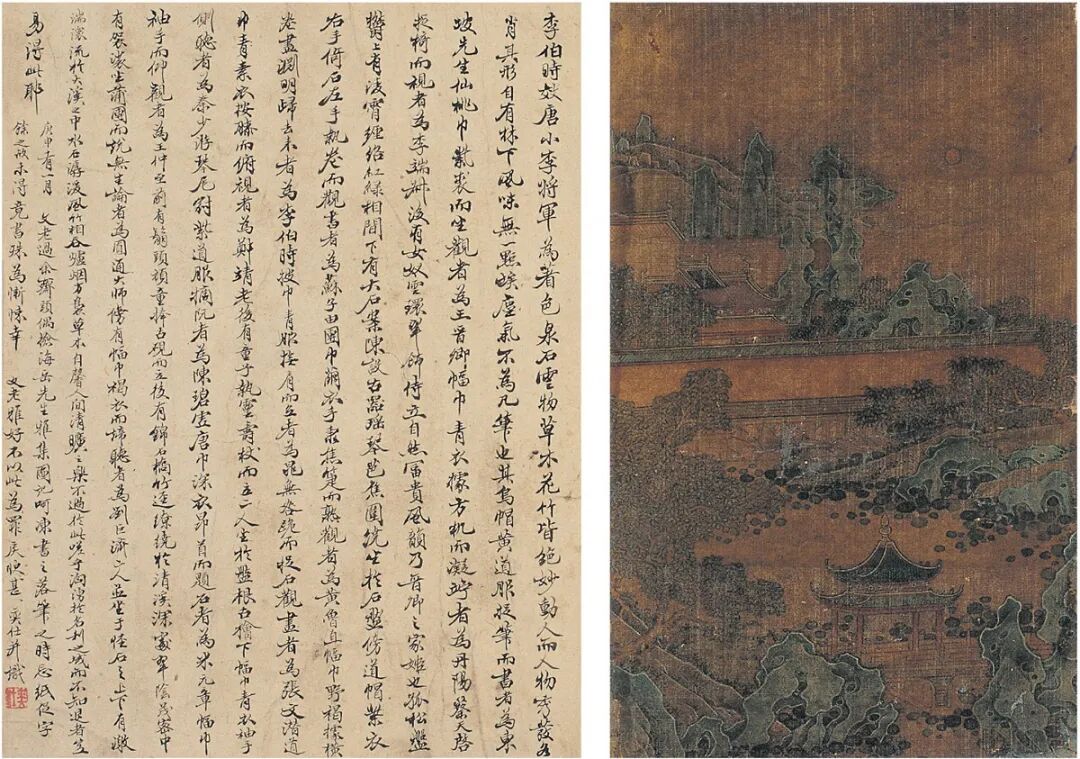 李伯時效唐小李將軍為著色泉石雲物草木花竹皆絕妙動人而人物秀發各
肖其形自有林下風味無一點埃塵氣不為凡筆也其烏帽黃道服捉筆而書者為東
坡先生仙桃巾紫裘而坐觀者為王晉卿幅巾青衣據方机而凝竚者為丹陽蔡天啓
捉椅而視者為李端叔後有女奴雲環翠飾侍立自然富貴風韻乃晉卿之家姬也孤松盤
鬱上有凌霄纏絡紅綠相間下有大石案陳設古器瑤琴芭蕉圍繞坐於石盤傍道帽紫衣
右手倚石左手執卷而觀書者為蘇子由團巾繭衣手秉蕉箑而熟觀者為黃魯直幅巾野褐據橫
卷畫淵明歸去來者為李伯時披巾青服撫肩而立者為晁無咎跪而捉石觀畫者為張文潛道
巾青素衣按膝而俯視者為鄭靖老後有童子執靈壽杖而立二人坐於盤根古檜下幅巾青衣袖手
側聽者為秦少游琴尾冠紫道服摘阮者為陳碧虛唐巾深衣昂首而題石者為米元章幅巾
袖手而仰觀者為王仲至前有鬅頭頑童捧古硯而立後有錦石橋竹逕繚繞於清溪深處翠陰茂密中
有袈裟坐蒲團而說無生論者為圓通大師傍有幅巾褐衣而諦聽者為劉巨濟二人並坐于怪石之上下有激
湍潀流於大溪之中水石潺湲風竹相吞爐烟方裊草木自馨人間清曠之樂不過於此嗟乎洶湧於名利之域而不知退者豈
易得此耶
庚申有一月 文老過余齋頭偶撿海岳先生雅集圖記呵凍書之落筆之時忘紙促字
餘之故不得竟書殊為慚悚幸 文老雅好不以此為罪戾便甚 奕仕并識